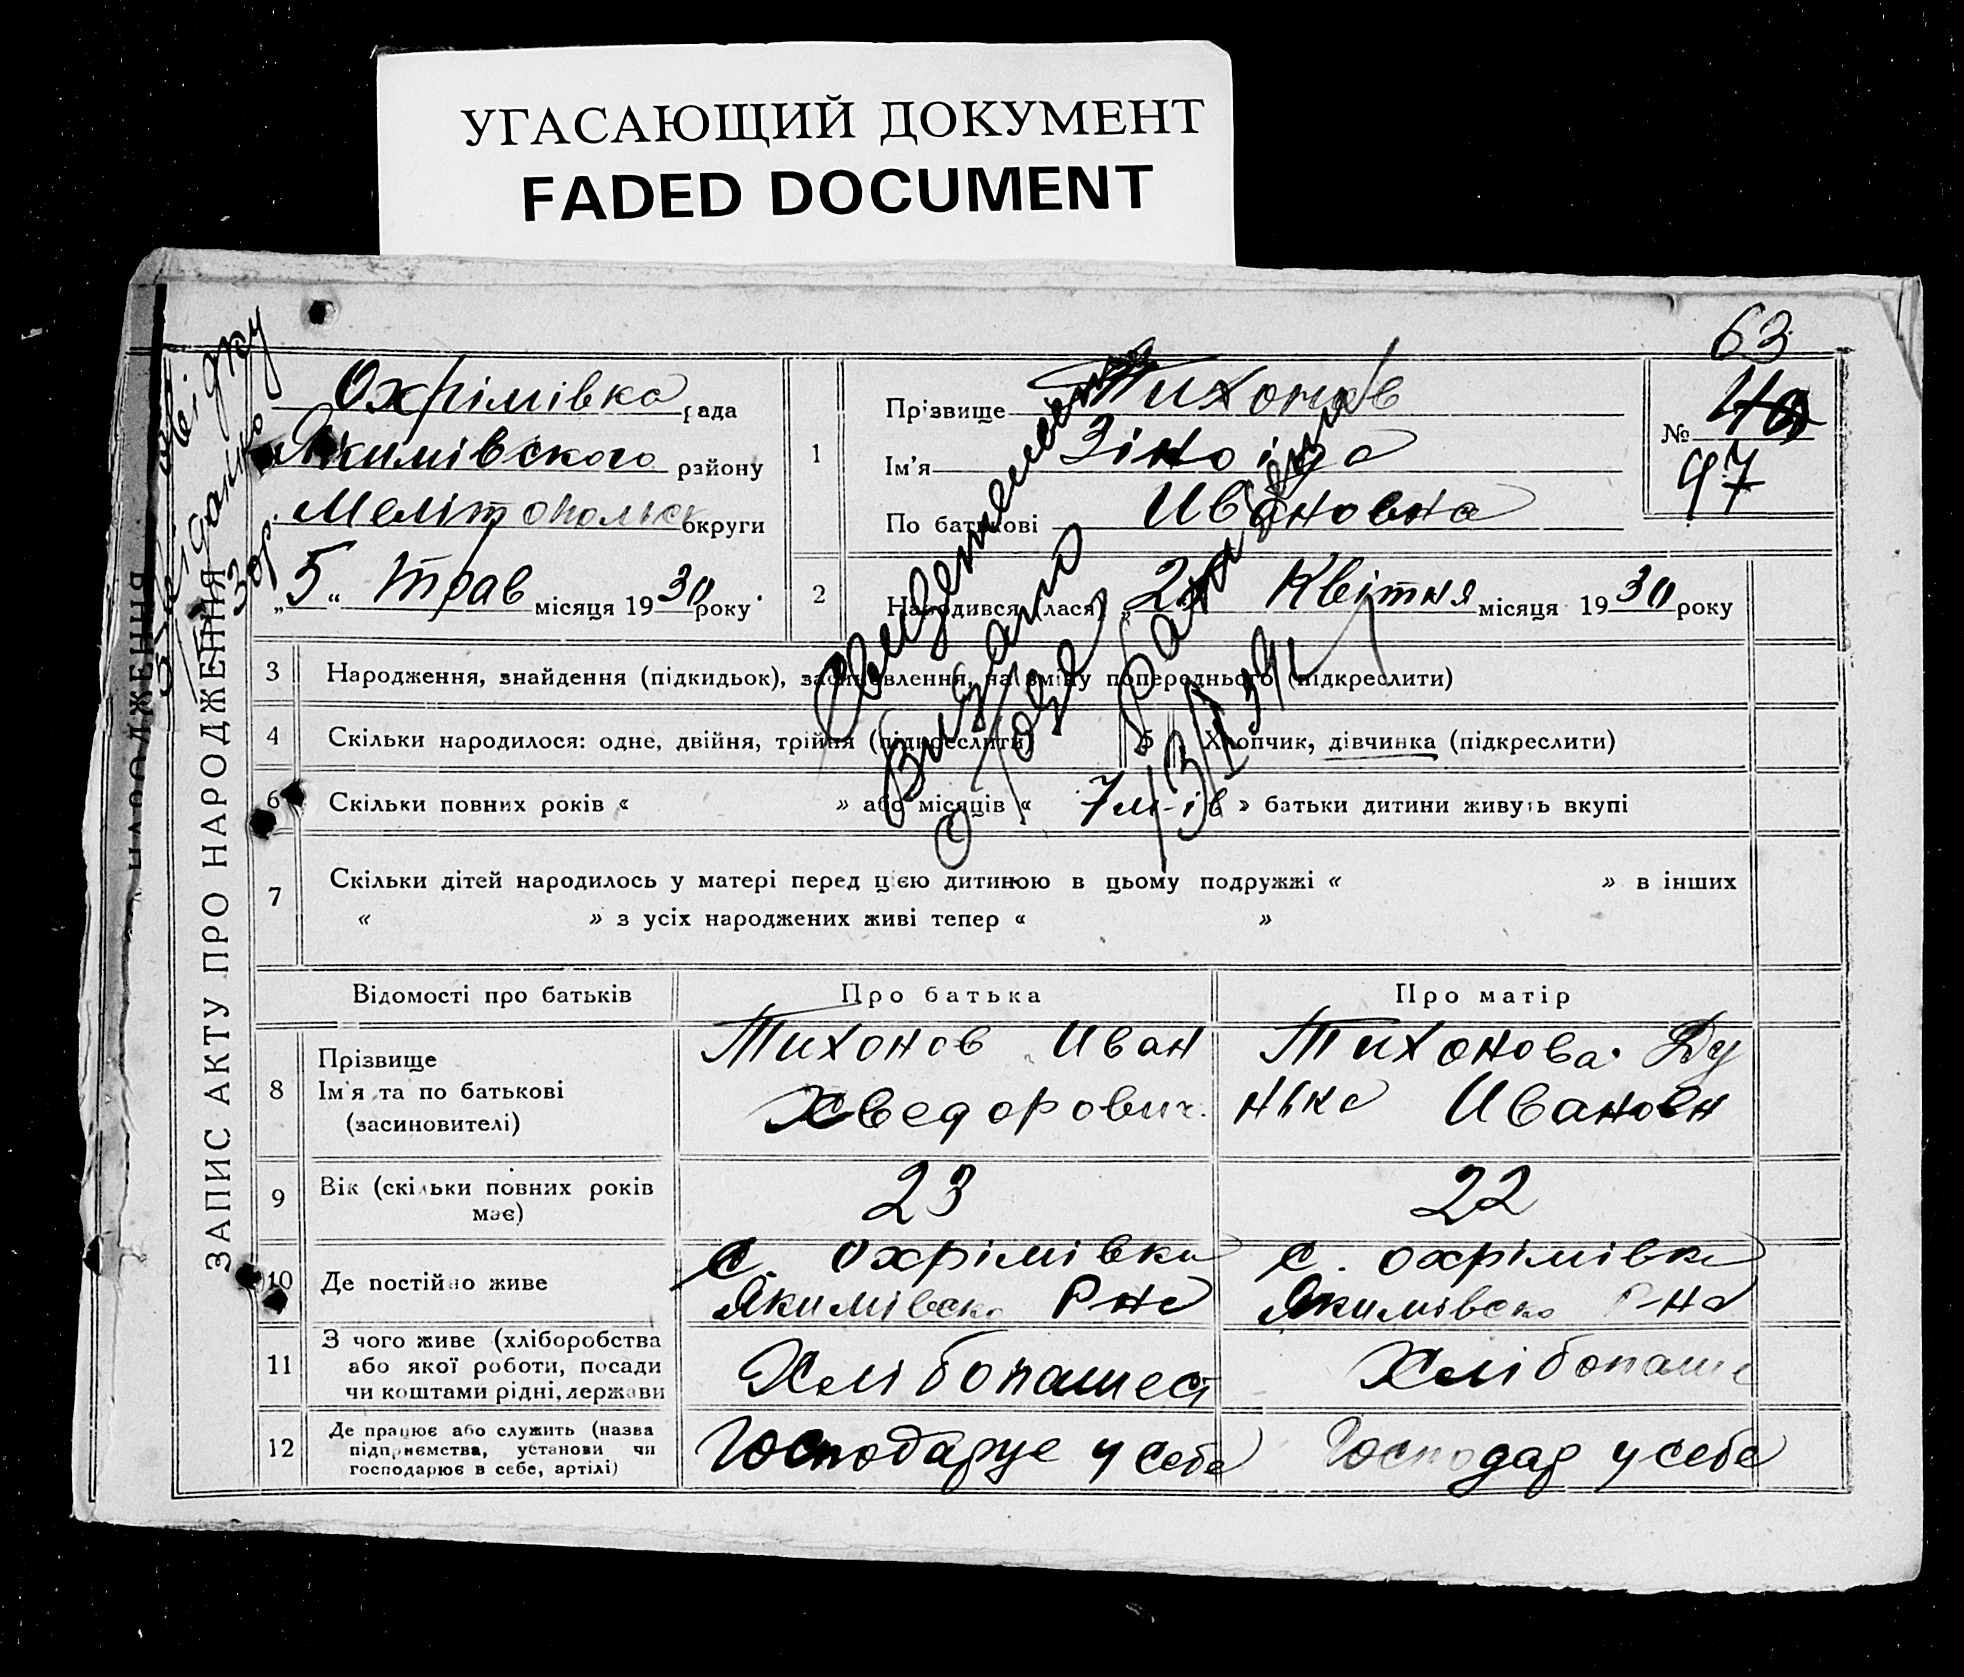 УГАСАЮЩИЙ ДОКУМЕНТ
FADED DOCUMENT
63
Охрімівка рада
Якимівського району
Мелітопольск округи
„5“ Трав місяця 1930 року
ЗАПИС АКТУ ПРО НАРОДЖЕННЯ
1
Прізвище Тихонов
Ім'я Зіноіда
По батькові Ивановна
№ 40
97
2 Народився (лася) „2 Квітня місяця 1930 року
3 Народження, знайдення (підкидьок), засиновлення, на зміну попереднього (підкреслити)
4 Скільки народилося: одне, двійня, трійня (підкреслити)
5 Хлопчик, дівчинка (підкреслити)
6 Скільки повних років « » або місяців « 7 м-ів » батьки дитини живуть вкупі
7 Скільки дітей народилось у матері перед цією дитиною в цьому подружжі « » в інших
« » з усіх народжених живі тепер « »
Відомості про батьків
Про батька
Про матір
8 Прізвище
Ім'я та по батькові
(засиновителі)
Тихонов Иван
Хведорович
Тихонова Ду
нька Ивановн
9 Вік (скільки повних років
має)
23
22
10 Де постійно живе
с. Охрімівка
Якимівско Р-на
с. Охрімівка
Якимівско Р-на
11 З чого живе (хліборобства
або якої роботи, посади
чи коштами рідні, держави
Хлібопашест
Хлібопаше
12 Де працює або служить (назва
підприємства, установи чи
господарює в себе, артілі)
Господарує у себе
Господар у себе